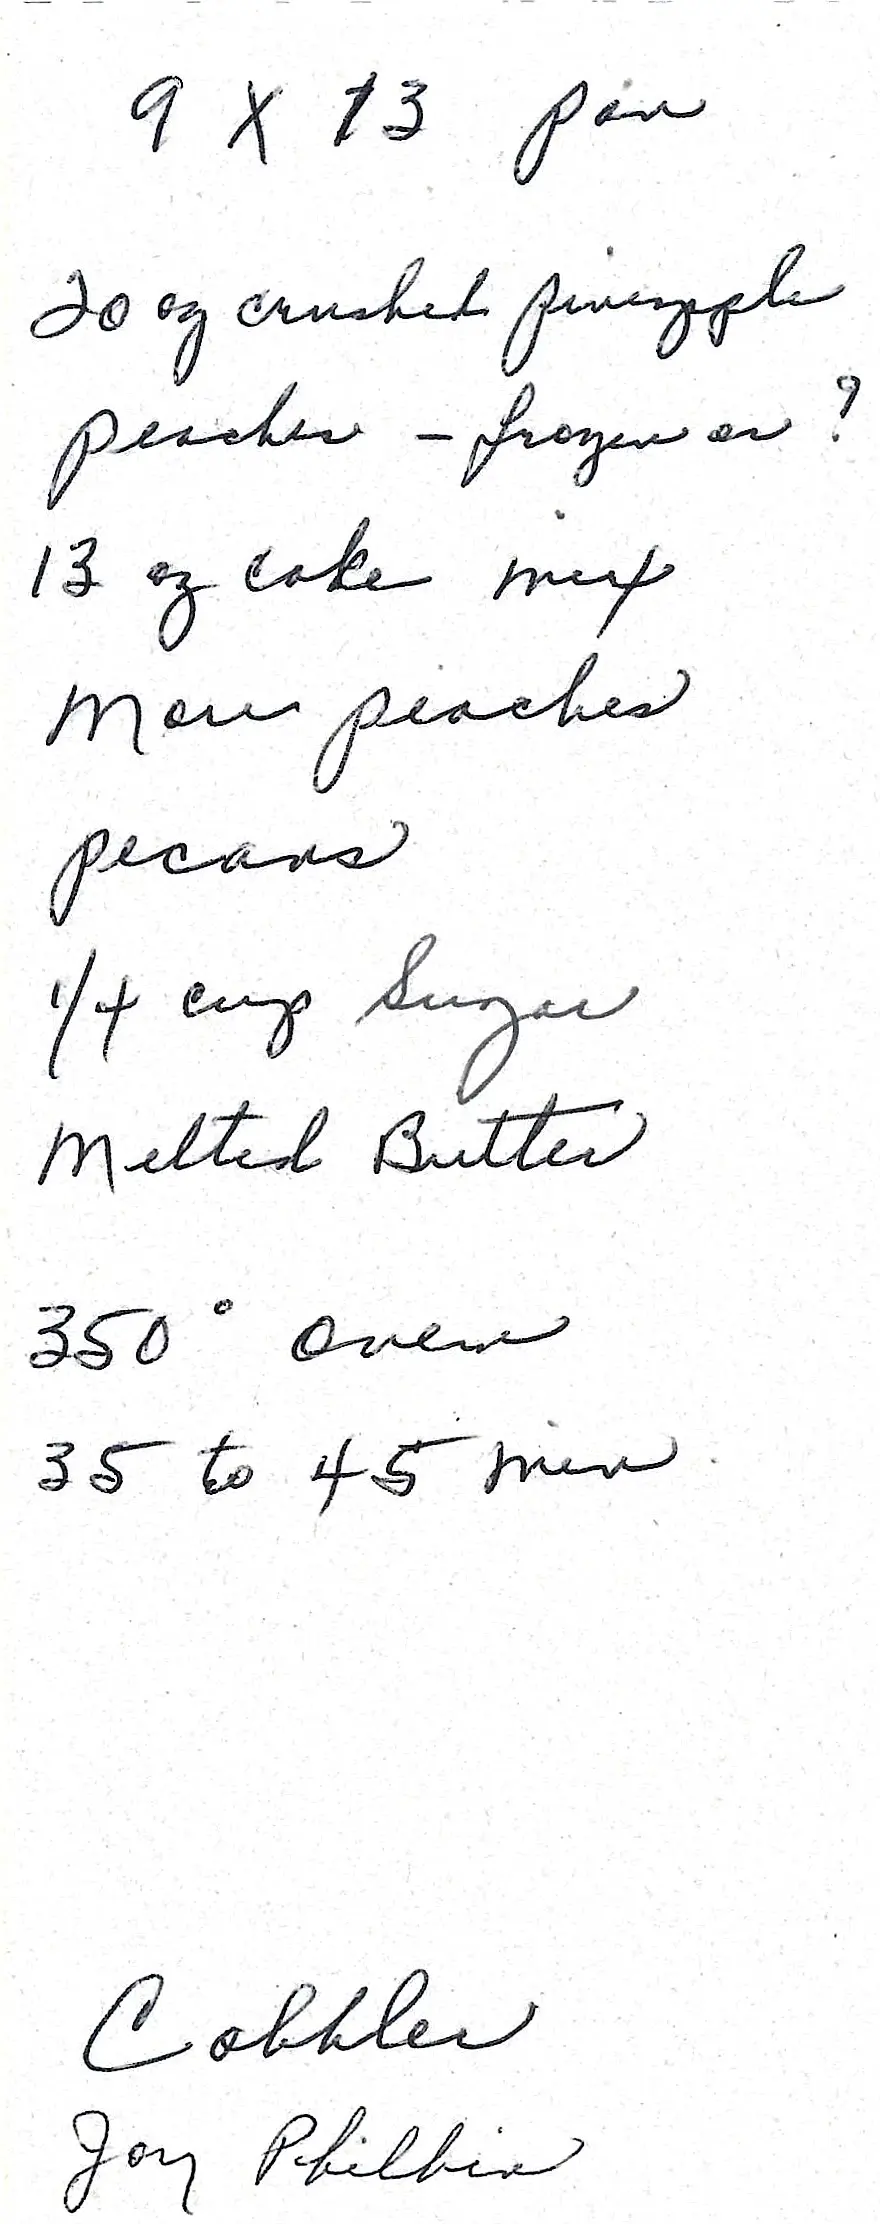 9 X 13 pan
20 oz crushed pineapple
peaches - frozen or ?
13 oz cake mix
More peaches
pecans
1/4 cup Sugar
Melted Butter
350° oven
35 to 45 min.
Cobbler
Joy Philbin